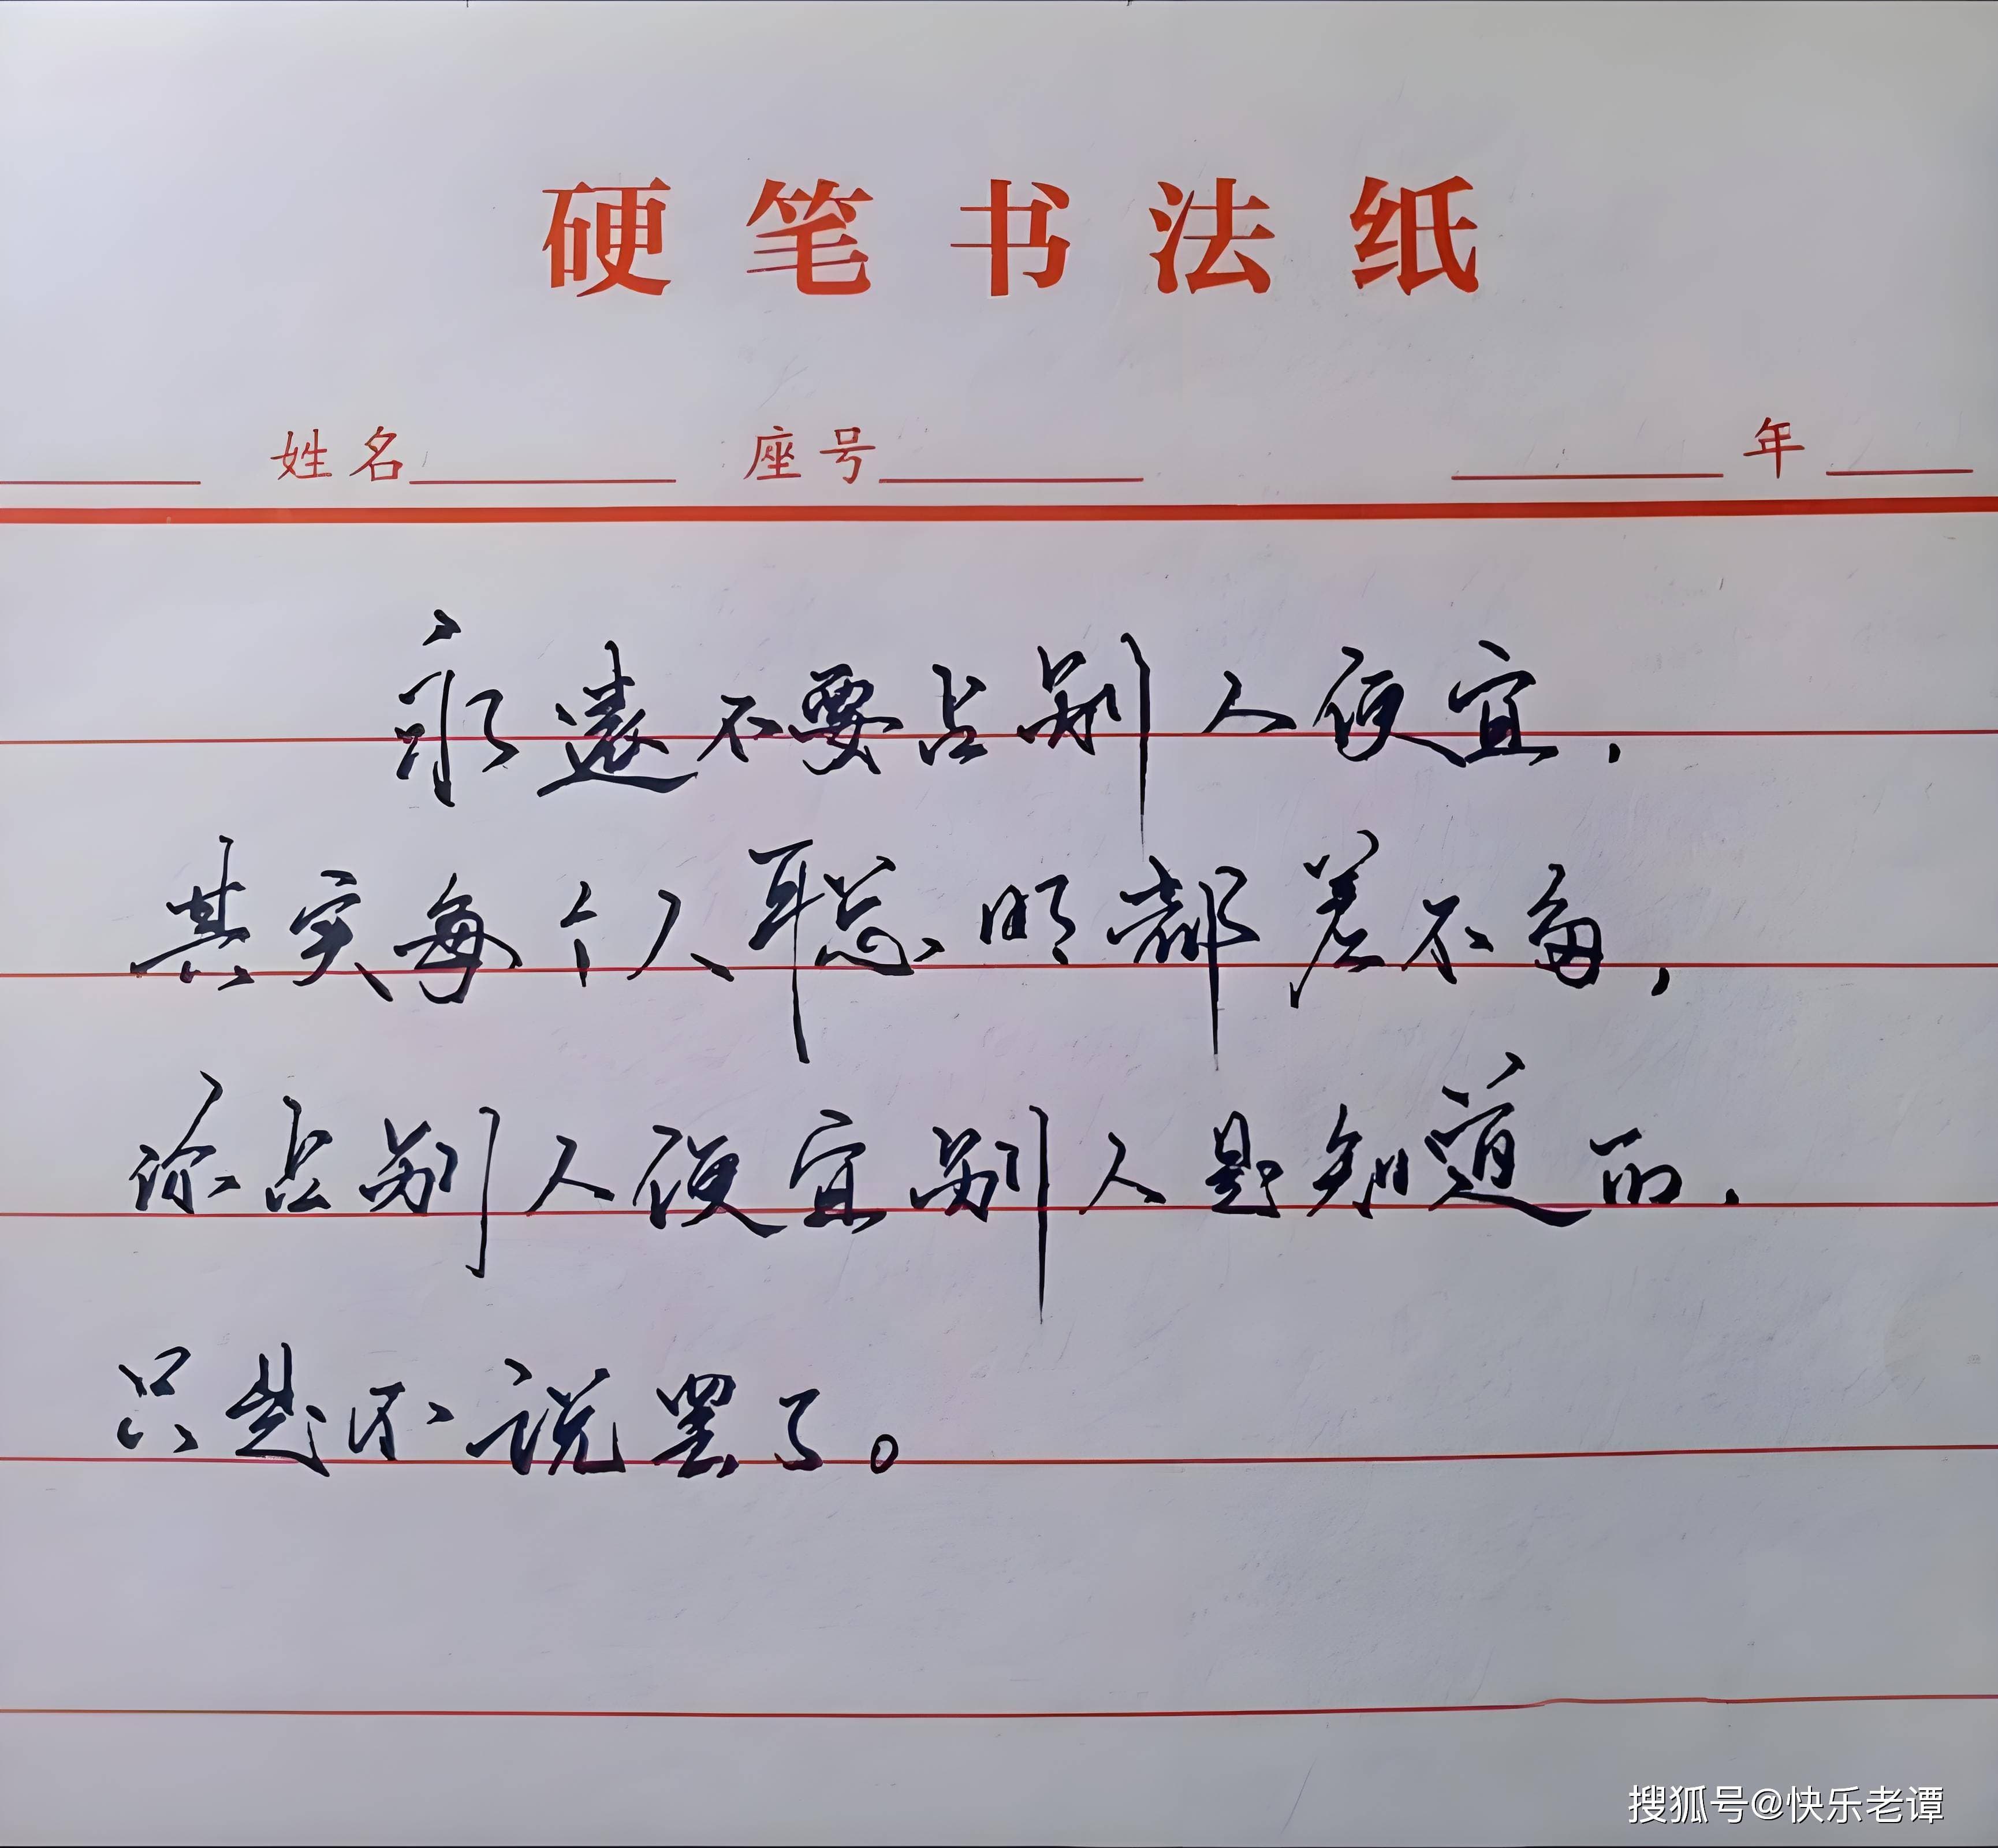 硬笔书法纸
姓名 座号 年
永遠不要占别人便宜，
其实每个人聪明都差不多，
你占别人便宜别人是知道的，
只是不说罢了。
搜狐号@快乐老谭